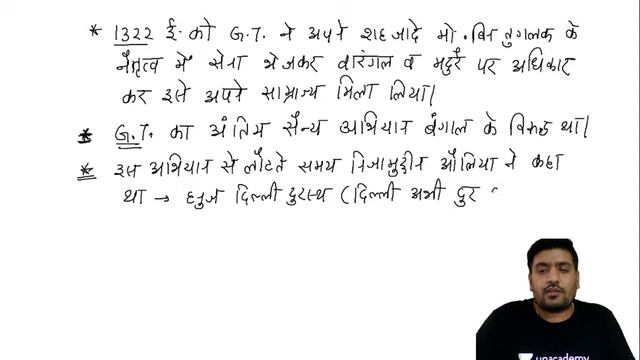 * 1322 ई. को G.T. ने अपने शहजादे मो. बिन तुगलक के
नेतृत्व में सेना भेजकर वारंगल व मदुरै पर अधिकार
कर इसे अपने साम्राज्य मिला लिया।
* G.T. का अंतिम सैन्य अभियान बंगाल के विरुद्ध था।
* इस अभियान से लौटते समय निजामुद्दीन औलिया ने कहा
था → हनुज दिल्ली दुरस्थ (दिल्ली अभी दुर
unacademy